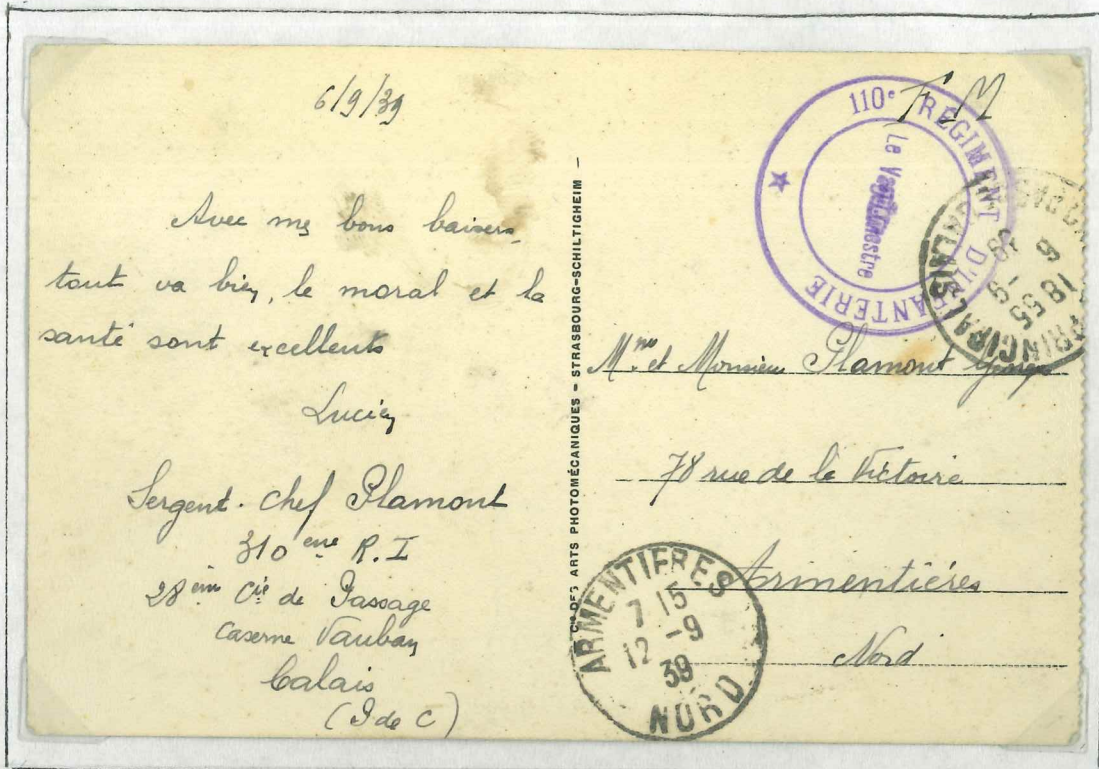 6/9/39
Avec mes bons baisers,
tout va bien, le moral et la
santé sont excellents
Lucien
Sergent-chef Plamont
310eme R.I
28eme Cie de Passage
Caserne Vauban
Calais
(P de C)
Cie DES ARTS PHOTOMÉCANIQUES - STRASBOURG-SCHILTIGHEIM -
F.M
110e REGIMENT D'INFANTERIE
Le Vaguemestre
CALAIS PRINCIPAL
18 55
Mme et Monsieur Plamont
78 rue de la Victoire
Armentières
Nord
ARMENTIERES
7 15
12 -9
39
NORD